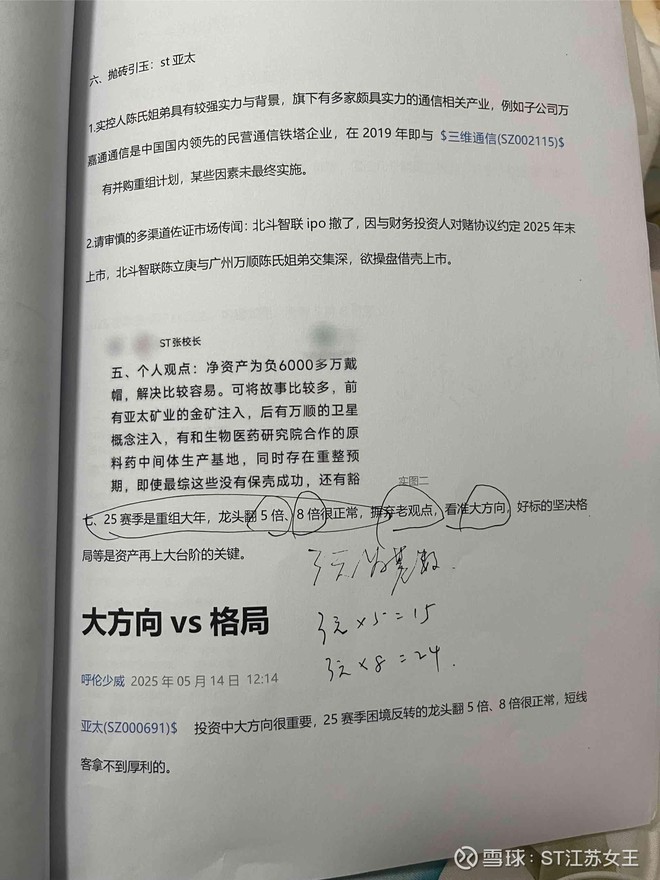 六、抛砖引玉：st 亚太
1.实控人陈氏姐弟具有较强实力与背景，旗下有多家颇具实力的通信相关产业，例如子公司万
嘉通通信是中国国内领先的民营通信铁塔企业，在 2019 年即与 $三维通信(SZ002115)$
有并购重组计划，某些因素未最终实施。
2.请审慎的多渠道佐证市场传闻：北斗智联 ipo 撤了，因与财务投资人对赌协议约定 2025 年末
上市，北斗智联陈立庚与广州万顺陈氏姐弟交集深，欲操盘借壳上市。
ST张校长
五、个人观点：净资产为负6000多万戴
帽，解决比较容易。可将故事比较多，前
有亚太矿业的金矿注入，后有万顺的卫星
概念注入，有和生物医药研究院合作的原
料药中间体生产基地，同时存在重整预
期，即使最综这些没有保壳成功，还有豁
实图二
七、25 赛季是重组大年，龙头翻 5 倍、8 倍很正常，摒弃老观点，看准大方向，好标的坚决格
局等是资产再上大台阶的关键。
3元的基数.
3元×5=15
3元×8=24.
大方向 vs 格局
呼伦少威 2025 年 05 月 14 日 12:14
亚太(SZ000691)$ 投资中大方向很重要，25 赛季困境反转的龙头翻 5 倍、8 倍很正常，短线
客拿不到厚利的。
雪球：ST江苏女王